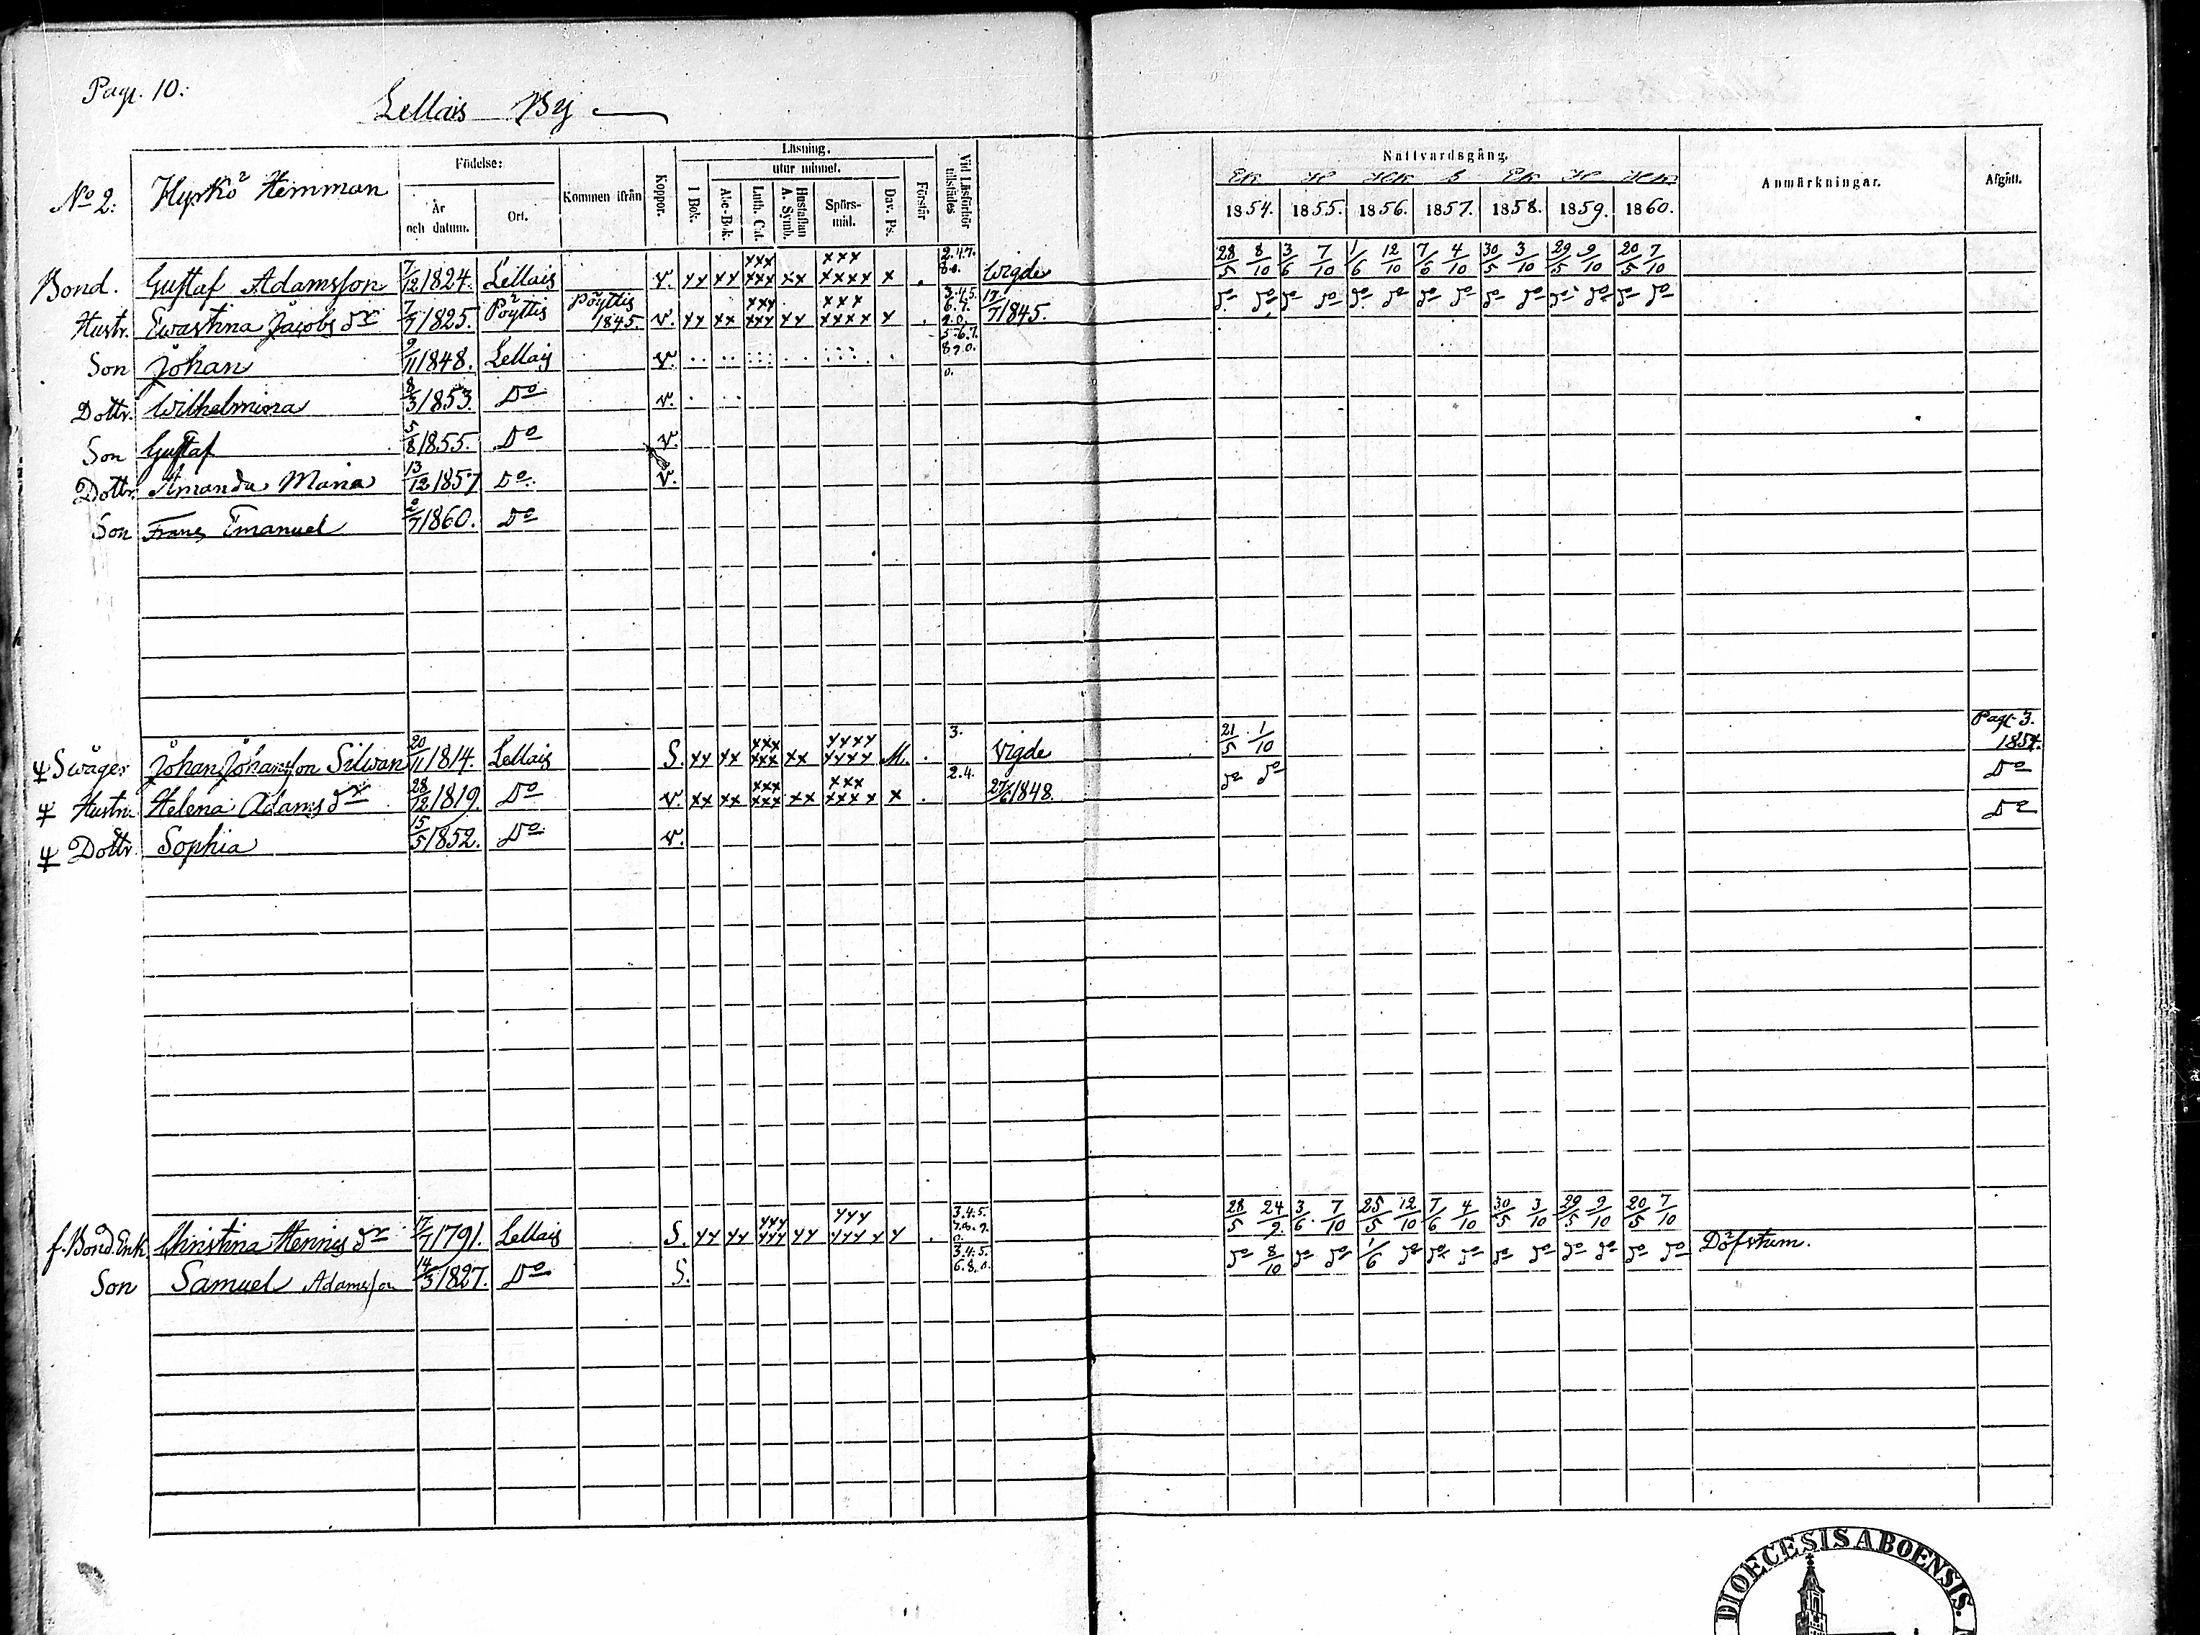 Pag. 10:
Lellais By
No 2: Hyrkö Hemman
Födelse:
År och datum.
Ort.
Kommen ifrån
Koppor.
Läsning.
utur minnet.
I Bok.
Abc-Bok.
Luth. Cat.
Hustaflan A. Symb.
Spörs-mål.
Dav. Ps.
Förstår
Vid Läsförhör tillstädes
Nattvardsgång.
1854. 1855. 1856. 1857. 1858. 1859. 1860.
Anmärkningar.
Afgått.
Bond. Gustaf Adamsson 7/12 1824. Lellais v. xx xx xxx xxx xx xxx xxxx x . 2.4.7. 8.0. Wigde 28/5 8/10 3/6 7/10 1/6 12/10 7/6 4/10 30/5 3/10 29/5 9/10 20/5 7/10
Hustr. Ewastina Jacobs dr 7/9 1825. Pöyttis Pöyttis 1845. v. xx xx xxx xxx xx xxx xxxx x . 17/7 1845. do do do do do do do do do do do do do do
Son Johan 9/11 1848. Lellais v.
Dottr. Wilhelmina 8/3 1853. Do v.
Son Gustaf 5/8 1855. Do v.
Dottr. Amanda Maria 13/12 1857 Do. v.
Son Frans Emanuel 2/7 1860. Do
Swåger Johan Johansson Silwan 20/11 1814. Lellais S. xx xx xxx xxx xx xxxx xxxx M. . 3. Vigde 21/5 1/10 Pag. 3. 1854.
Hustru Helena Adams dr 28/12 1819. Do v. xx xx xxx xxx xx xxx xxxx x . 2.4. 27/6 1848. do do Do
Dottr. Sophia 15/5 1852. Do v. Do
f. Bond. Enk. Christina Henrics dr 17/7 1791. Lellais S. xx xx xxx xxx xx xxx xxxx x . 3.4.5. 28/5 24/9. 3/6. 7/10 25/5 12/10 7/6 4/10 30/5 3/10 29/5 9/10 20/5 7/10
Son Samuel Adamsson 14/3 1827. Do S. 3.4.5. 6.8.0. do 8/10 do do 1/6 do do do do do do do do do Döfstum.
DIOECESIS ABOENSIS.